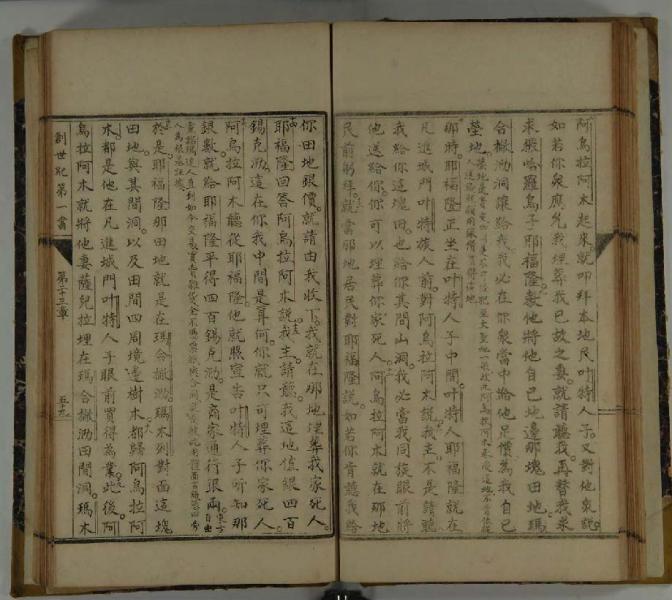 阿烏拉阿木起來就叩拜本地民叶特人子又對他衆說
如若你衆應允我埋葬我已故之妻就請聽我再替我求
求縀哈羅烏子耶福隆衆他將他自己地邊那塊田地瑪
合撇泐洞讓給我我必在你衆當中給他足價為我自己
塋地
那時耶福隆正坐在叶特人子中間叶特人耶福隆就在
凡進城門叶特族人前對阿烏拉阿木說我主不是請聽
我給你這塊田也給你其間山洞我必當我同族眼前將
他送給你你可以埋葬你家死人阿烏拉阿木就在那地
民前躬拜就當那地居民對耶福隆說如若你肯聽我給
你田地銀價就請由我收下我就在那地埋葬我家死人
耶福隆回答阿烏拉阿木說我主請聽我這地值銀四百
錫克泐這在你我中間是算何你就只可埋葬你家死人
阿烏拉阿木聽從耶福隆他就照宣告叶特人子听知那
銀數就給耶福隆平得四百錫克泐是商家通行銀兩
於是耶福隆那田地就是在瑪合撇泐瑪木列對面這塊
田地與其間洞以及田間四周境邊樹木都歸阿烏拉阿
木都是他在凡進城門叶特人子眼前買得為業此後阿
烏拉阿木就將他妻薩兒拉埋在瑪合撇泐田間洞瑪木
創世記第一書
第二十三章
五十九